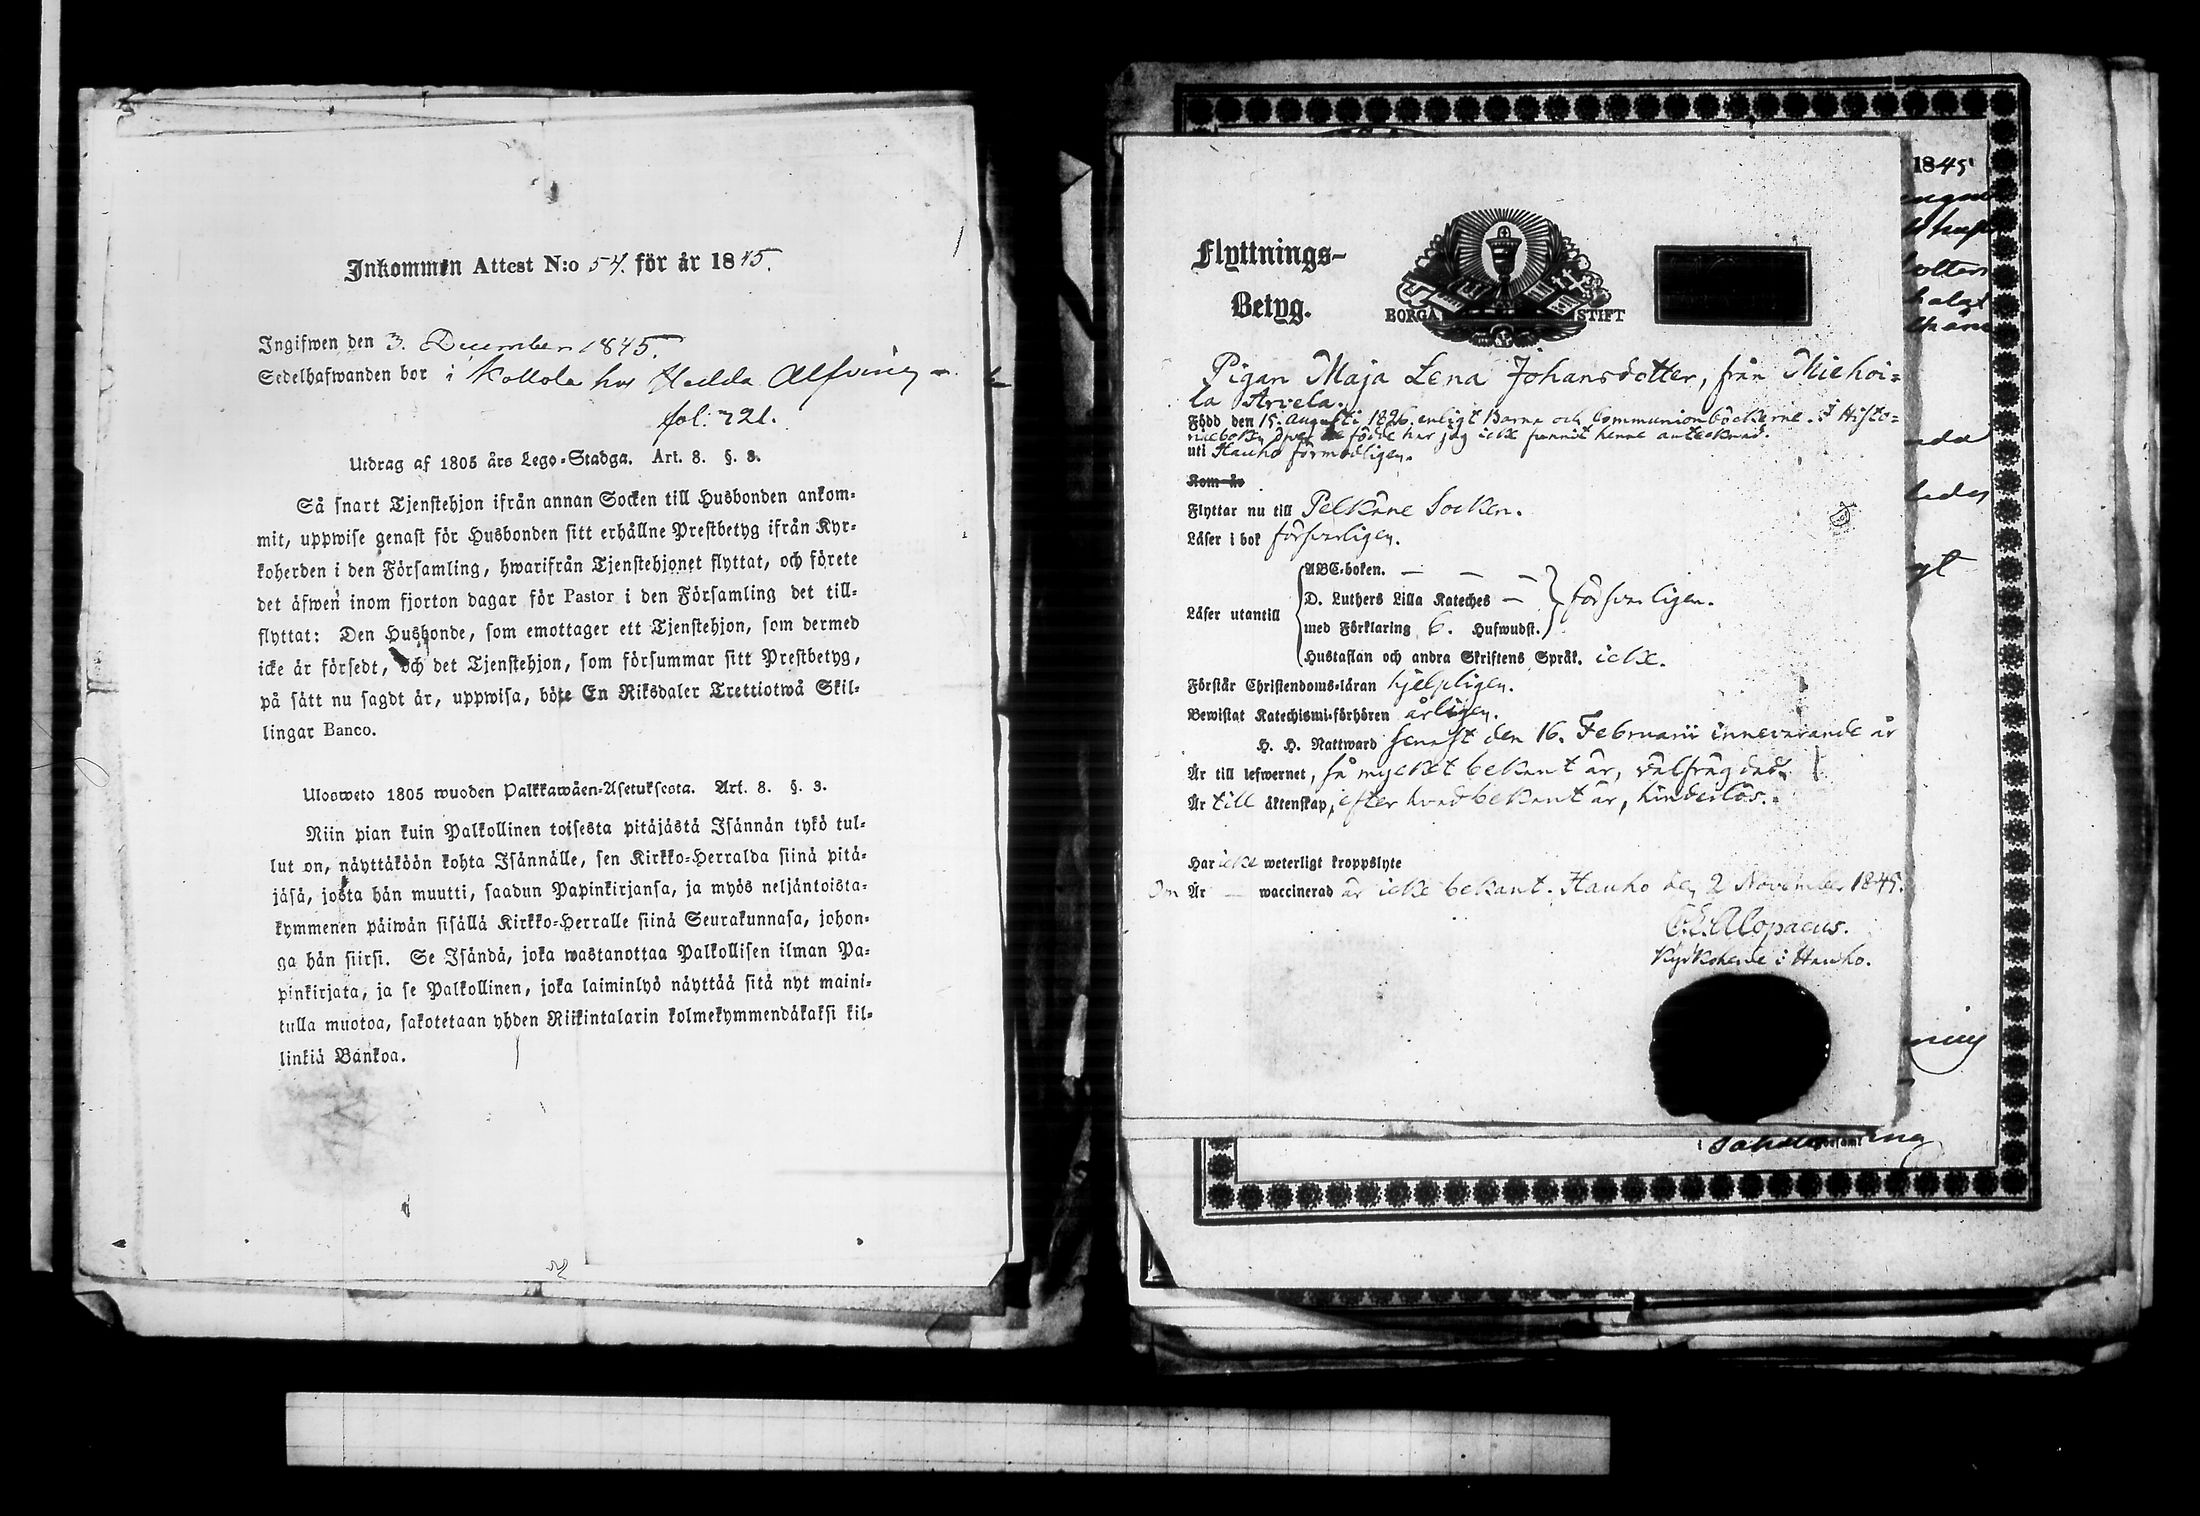 Inkommen Attest N:o 54. för år 1845.
Ingifwen den 3. December 1845.
Sedelhafwanden bor i Kollola hos Hedda Alfving
fol. 721.
Utdrag af 1805 års Lego-Stadga. Art. 8. §. 3.
Så snart Tjenstehjon ifrån annan Socken till Husbonden ankom-
mit, uppwise genast för Husbonden sitt erhållne Prestbetyg ifrån Kyr-
koherden i den Församling, hwarifrån Tjenstehjonet flyttat, och förete
det äfwen inom fjorton dagar för Pastor i den Församling det till-
flyttat: Den Husbonde, som emottager ett Tjenstehjon, som dermed
icke är försedt, och det Tjenstehjon, som försummar sitt Prestbetyg,
på sätt nu sagdt är, uppwisa, böte En Riksdaler Trettiotwå Skil-
lingar Banco.
Ulosweto 1805 wuoden Palkkawäen-Asetuksesta. Art. 8. §. 3.
Niin pian kuin Palkollinen toisesta pitäjästä Isännän tykö tul-
lut on, näyttäköön kohta Isännälle, sen Kirkko-Herralda siinä pitä-
jäsä, josta hän muutti, saadun Papinkirjansa, ja myös neljäntoista-
kymmenen päiwän sisällä Kirkko-Herralle siinä Seurakunnasa, johon-
ga hän siirsi. Se Isändä, joka wastanottaa Palkollisen ilman Pa-
pinkirjata, ja se Palkollinen, joka laiminlyö näyttää sitä nyt maini-
tulla muotoa, sakotetaan yhden Riikintalarin kolmekymmendäkaksi kil-
linkiä Bankoa.
Flyttnings-
Betyg.
BORGÅ STIFT
Pigan Maja Lena Johansdotter, från Miehoi-
la Arvela.
Född den 15. Augusti 1826. enligt Barna och Communionböckerne. I Histo-
rieboken öfver de födde har jag icke funnit henne antecknad.
uti Hauho förmodligen.
Kom år
Flyttar nu till Pelkäne Socken.
Läser i bok försvarligen.
ABC-boken. — — —
D. Luthers Lilla Kateches —
Läser utantill försvarligen.
med Förklaring 6. Hufwudst.
Hustaflan och andra Skriftens Språk. icke.
Förstår Christendoms-läran hjelpligen.
Bewistat Katechismi-förhören årligen.
H. H. Nattward senast den 16. Februarii innevarande år
Är till lefwernet, så mycket bekant är, välfrägdad.
Är till äktenskap, efter hvad bekant är, hinderlös.
Har icke weterligt kroppslyte
Om Är — waccinerad är icke bekant. Hauho den 2 November 1845.
C. E. Alopaeus.
Kyrkoherde i Hauho.
1845